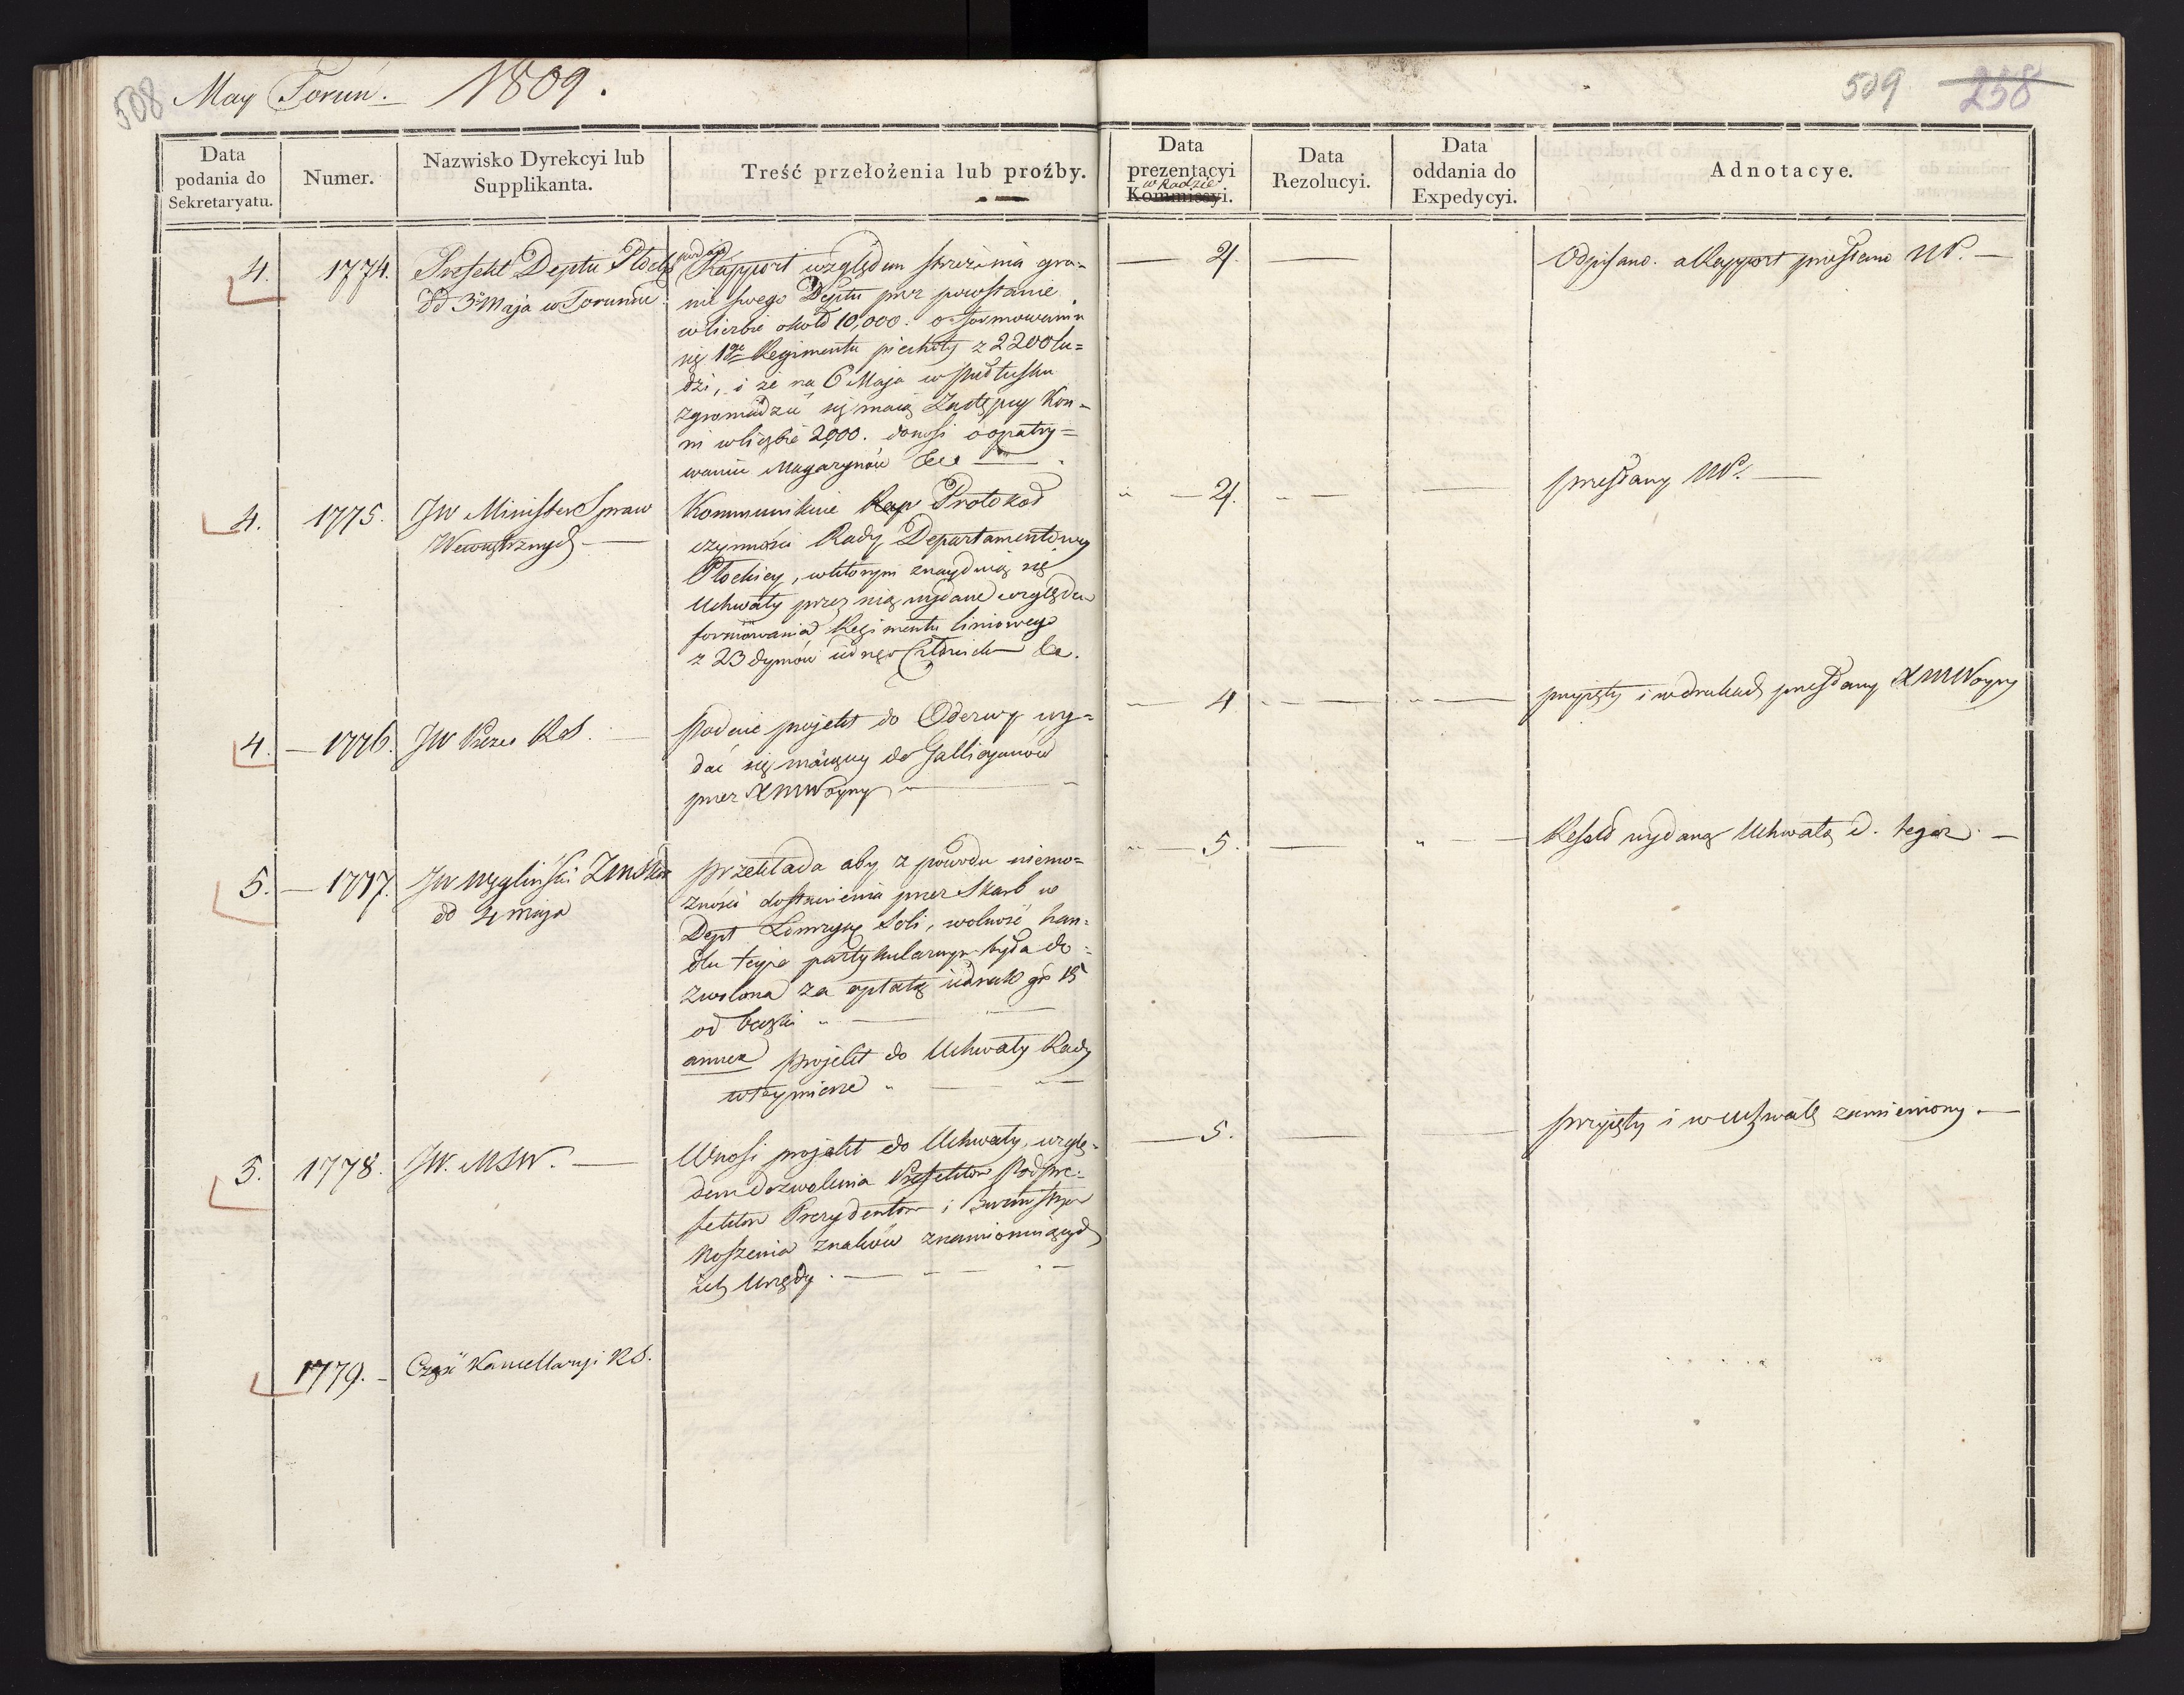 508 May Toruń. 1809.
509 258
Data podania do Sekretaryatu.
Numer.
Nazwisko Dyrekcyi lub Supplikanta.
Treść przełożenia lub proźby.
Data prezentacyi w Radzie Kommissyi.
Data Rezolucyi.
Data oddania do Expedycyi.
Adnotacye.
4. 1774. Prefekt Deptu Płock
dd 3° Maja w Toruniu
Rapport względem strzeżenia gra-
nic swego Deptu przez powstanie
w liczbie około 10,000. o formowaniu
się 1go Regimentu piechoty z 2200 lu=
dzi, i że na 6 Maja w Pułtusku
zgromadzić się maią Zastępcy Kon-
ni w liczbie 2000. donosi o opatry=
waniu Magazynów &c
4. Odpisano. a Rapport przesłano MP.
4. 1775. JW Minister Spraw
Wewnętrznych
Kommunikuie Rap Protokoł
czynności Rady Departamentowey
Płockiey, w którym znayduią się
Uchwały przez nią wydane względem
formowania Regimentu liniowego
z 23 dymów iednego Człowieka &c.
4. przesłany MP.
4. 1776. JW Prezes RS.
Podaie projekt do Odezwy wy=
dać się maiącey do Gallicyanów
przez XMWoyny
4 przyięty i w druku przesłany XMWoyny
5. 1777. JW Węgliński ZMSkar
dd 4 maja
przekłada aby z powodu niemo=
żności dostawienia przez Skarb w
Dept Łomżyń Soli, wolność han=
dlu teyże partykularnym była do=
zwolona za opłatą iednak gr 15
od beczki
annex projekt do Uchwały Rady
w tey mierze
5. Resold wydaną Uchwałą d. tegoż.
5. 1778. JW. MSW.
Wnosi projekt do Uchwały wzglę=
dem dozwolenia Prefektów Podpre=
fektów Prezydentów i Burmistrzów
Noszenia znaków znamionuiących
ich Urzędy.
5. przyięty i w uchwałę zamieniony.
1779. Część Kancellaryi RS.